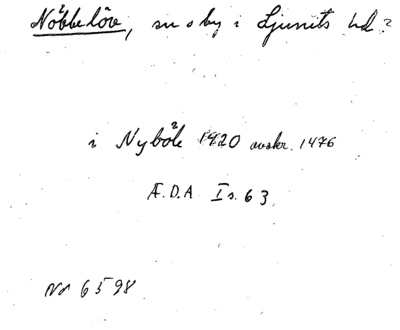 Nöbbelöv, sn o by i Ljunits hd?
i Nyböle 1420 avskr. 1476
Æ.D.A I s. 63.
No 6598